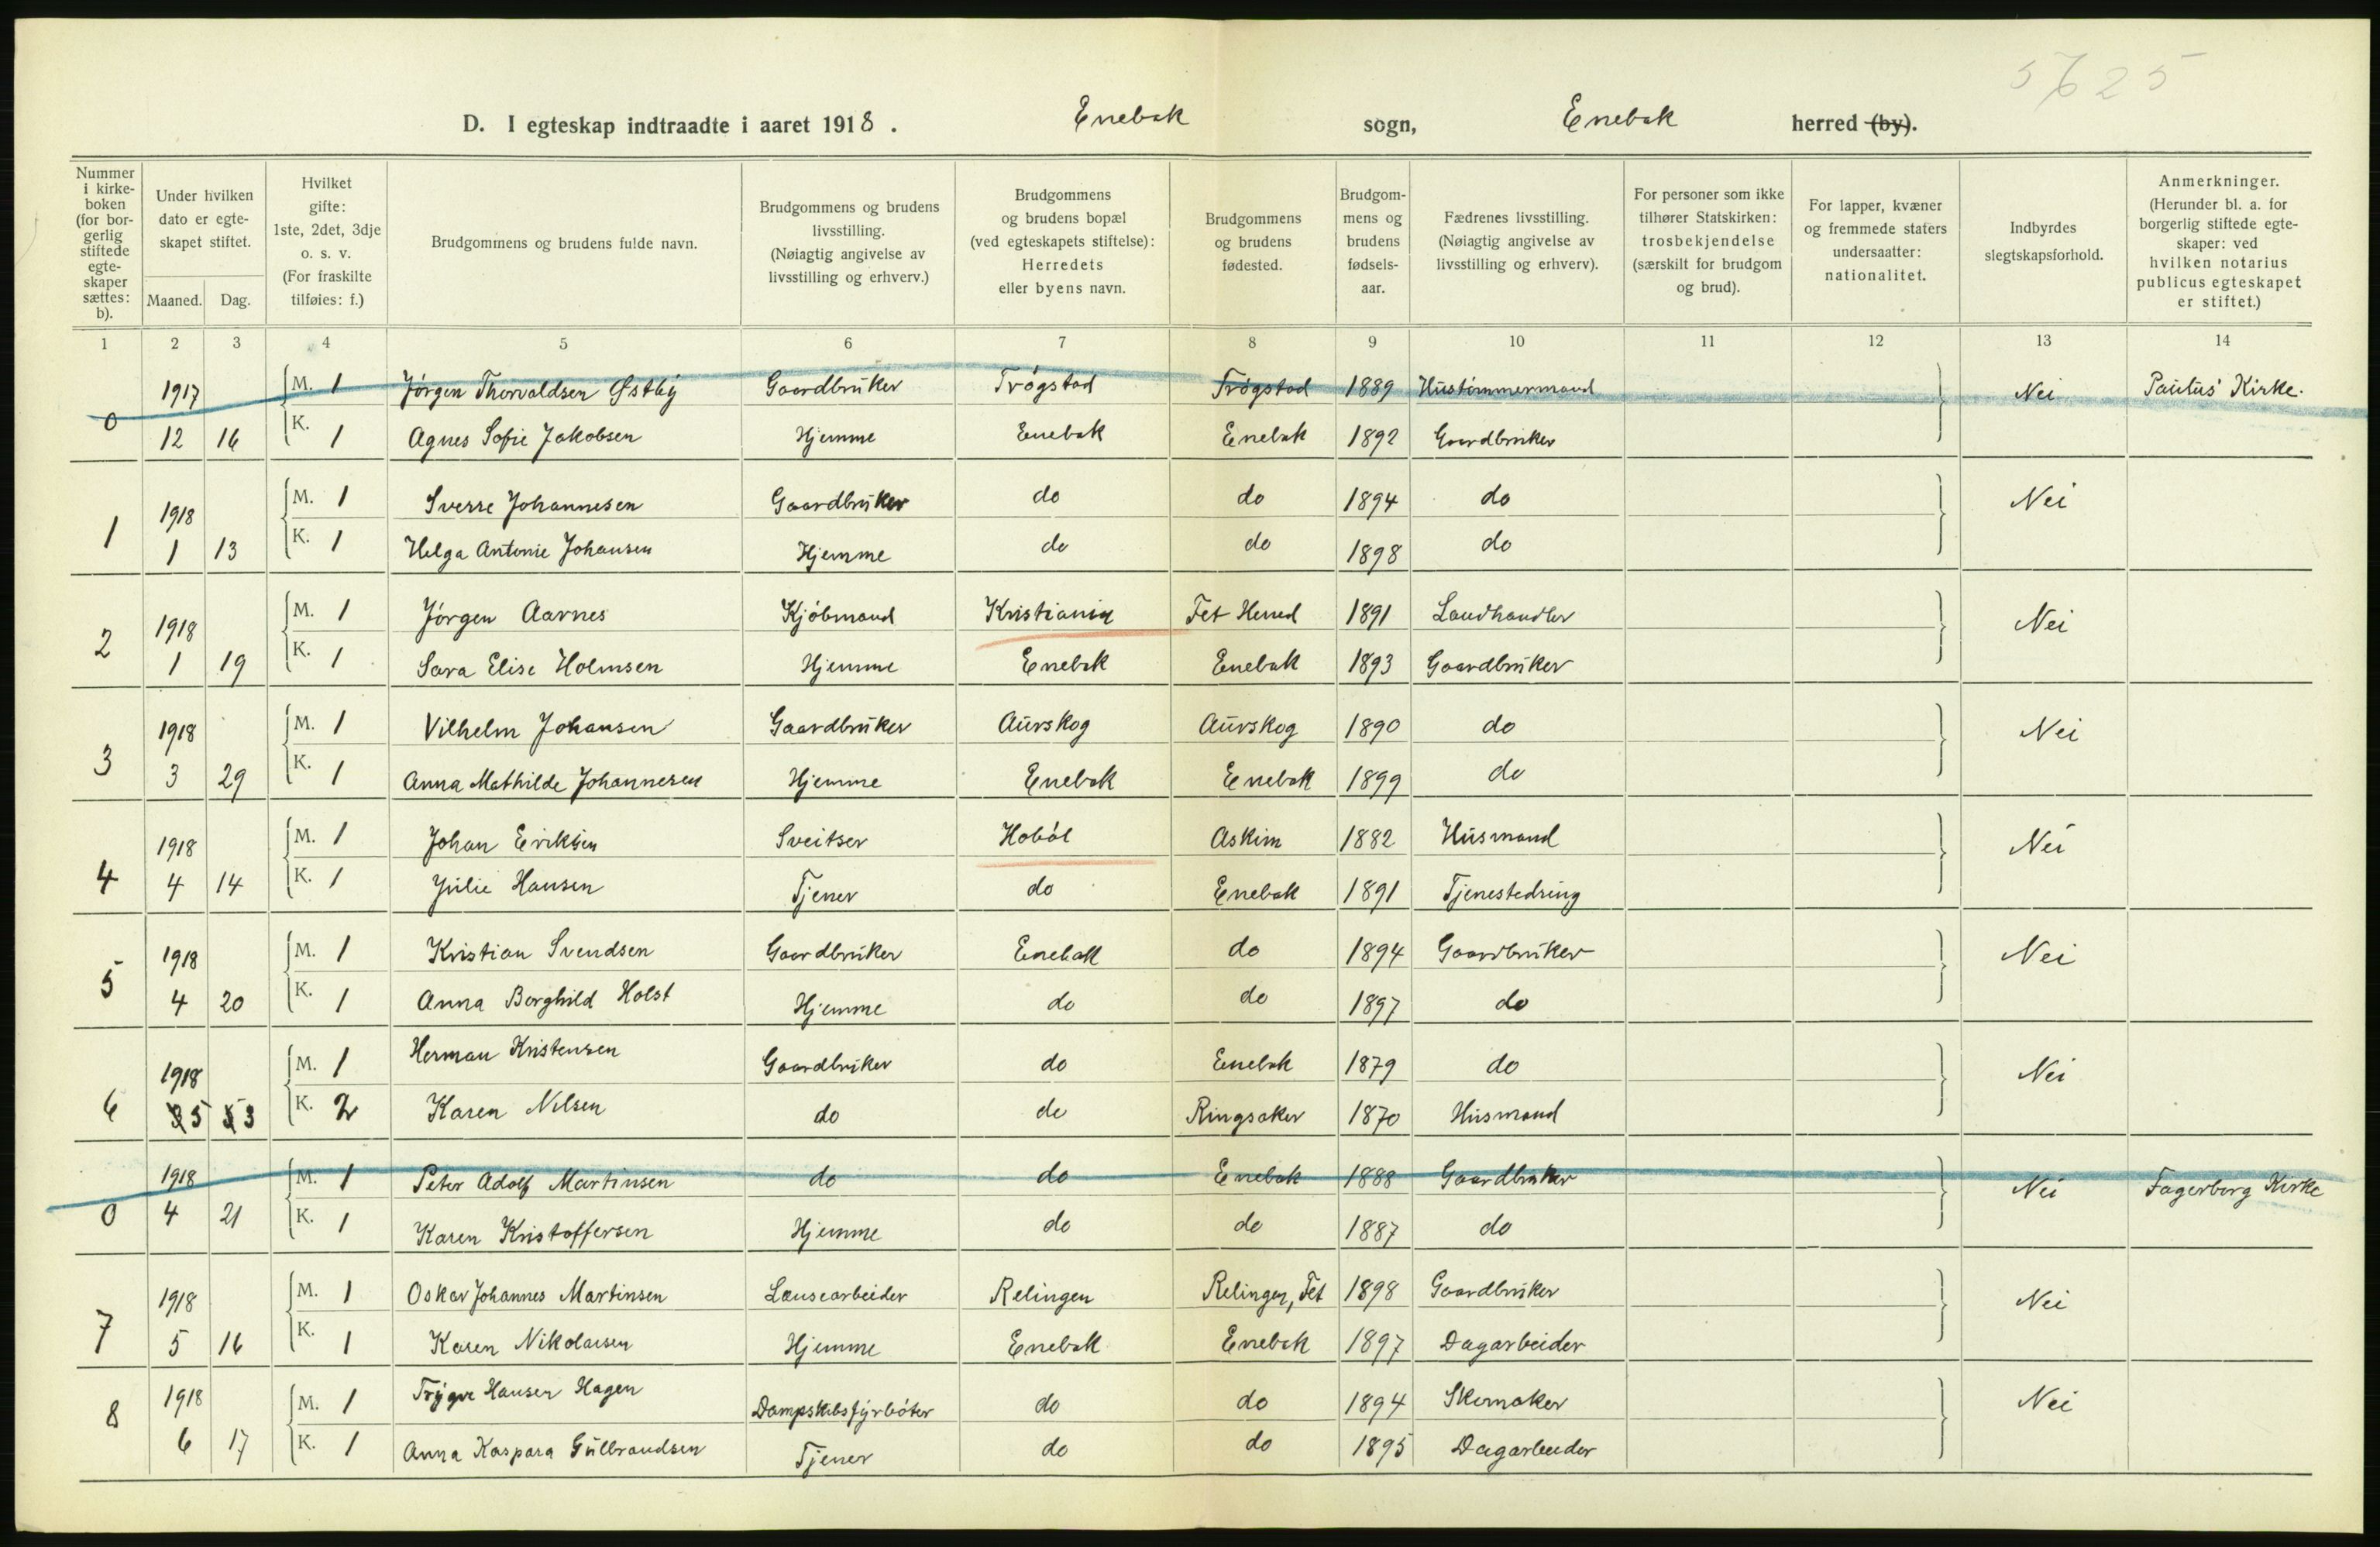 5625
D. I egteskap indtraadte i aaret 1918. Enebak sogn, Enebak herred (by).
Nummer i kirkeboken (for borgerlig stiftede egteskaper sættes: b).
Under hvilken dato er egteskapet stiftet. Maaned. Dag.
Hvilket gifte: 1ste, 2det, 3dje o. s. v. (For fraskilte tilføies: f.)
Brudgommens og brudens fulde navn.
Brudgommens og brudens livsstilling. (Nøiagtig angivelse av livsstilling og erhverv.)
Brudgommens og brudens bopæl (ved egteskapets stiftelse): Herredets eller byens navn.
Brudgommens og brudens fødested.
Brudgommens og brudens fødselsaar.
Fædrenes livsstilling. (Nøiagtig angivelse av livsstilling og erhverv).
For personer som ikke tilhører Statskirken: trosbekjendelse (særskilt for brudgom og brud).
For lapper, kvæner og fremmede staters undersaatter: nationalitet.
Indbyrdes slegtskapsforhold.
Anmerkninger. (Herunder bl. a. for borgerlig stiftede egteskaper: ved hvilken notarius publicus egteskapet er stiftet.)
1 2 3 4 5 6 7 8 9 10 11 12 13 14
0 1917 M. 1 Jörgen Thorvaldsen Østby Gaardbruker Trögstad Trögstad 1889 Hustömmermand Nei Paulus' Kirke.
12 16 K. 1 Agnes Sofie Jakobsen Hjemme Enebak Enebak 1892 Gaardbruker
1 1918 M. 1 Sverre Johannesen Gaardbruker do do 1894 do Nei
1 13 K. 1 Helga Antonie Johansen Hjemme do do 1898 do
2 1918 M. 1 Jörgen Aarnes Kjöbmand Kristiania Fet Herred 1891 Landhandler Nei
1 19 K. 1 Sara Elise Holmsen Hjemme Enebak Enebak 1893 Gaardbruker
3 1918 M. 1 Vilhelm Johansen Gaardbruker Aurskog Aurskog 1890 do Nei
3 29 K. 1 Anna Mathilde Johannesen Hjemme Enebak Enebak 1899 do
4 1918 M. 1 Johan Eriksen Sveitser Hoböl Askim 1882 Husmand Nei
4 14 K. 1 Julie Hansen Tjener do Enebak 1891 Tjenestedreng
5 1918 M. 1 Kristian Svendsen Gaardbruker Enebak do 1894 Gaardbruker Nei
4 20 K. 1 Anna Borghild Holst Hjemme do do 1897 do
6 1918 M. 1 Herman Kristensen Gaardbruker do Enebak 1879 do Nei
3 5 5 3 K. 2 Karen Nilsen do do Ringsaker 1870 Husmand
0 1918 M. 1 Peter Adolf Martinsen do do Enebak 1888 Gaardbruker Nei Fagerborg Kirke
4 21 K. 1 Karen Kristoffersen Hjemme do do 1887 do
7 1918 M. 1 Oskar Johannes Martinsen Lensearbeider Relingen Relingen, Fet 1898 Gaardbruker Nei
5 16 K. 1 Karen Nikolaisen Hjemme Enebak Enebak 1897 Dagarbeider
8 1918 M. 1 Trygve Hansen Hagen Dampskibsfyrböter do do 1894 Skomaker Nei
6 17 K. 1 Anna Kaspara Gulbrandsen Tjener do do 1895 Dagarbeider